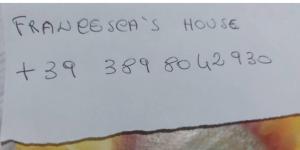 FRANCESCA'S HOUSE
+39 389 8042930